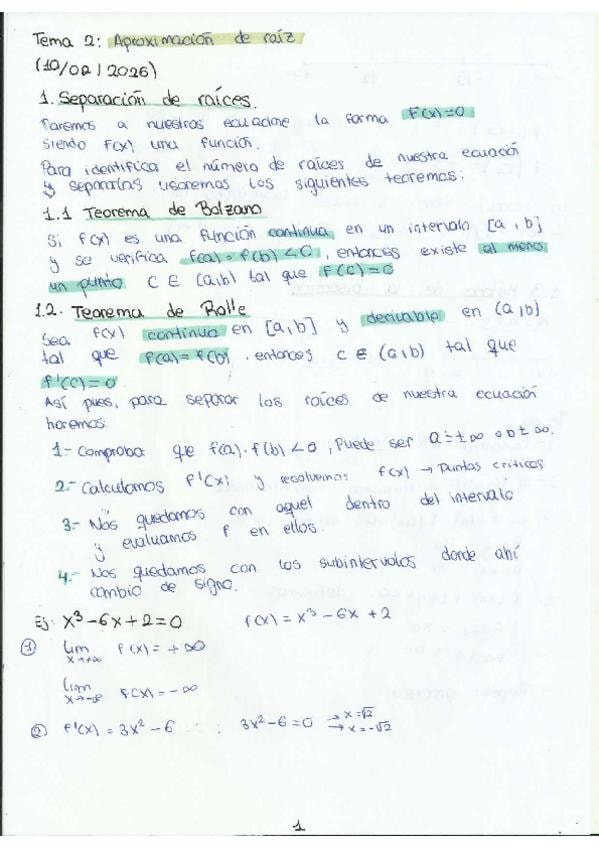 Tema 2: Aproximación de raíz
(10/02/2026)
1. Separación de raíces.
Paremos a nuestros ecuacione la forma F(x)=0
siendo f(x) una función.
Para identifica el número de raíces de nuestra ecuación
y separarlas usaremos los siguientes teoremas:
1.1 Teorema de Bolzano
Si f(x) es una función continua en un intervalo [a, b]
y se verifica f(a) · f(b) < 0, entonces existe al menos
un punto c ∈ (a,b) tal que f(c)=0
1.2. Teorema de Rolle
Sea f(x) continua en [a,b] y derivable en (a,b)
tal que f(a)=f(b), entonces c ∈ (a,b) tal que
f'(c)=0
Así pues, para separar las raíces de nuestra ecuación
haremos:
1.- Comprobar que f(a)·f(b)<0, Puede ser a=±∞ o b±∞.
2.- Calculamos f'(x) y resolvemos f(x) → Puntos críticos
3.- Nos quedamos con aquel dentro del intervalo
y evaluamos f en ellos.
4.- Nos quedamos con los subintervalos donde ahí
cambio de signo.
Ej: x³-6x+2=0 f(x)=x³-6x+2
① lim x→+∞ f(x)=+∞
lim x→-∞ f(x)=-∞
② f'(x)=3x²-6 3x²-6=0 → x=√2
→ x=-√2
1